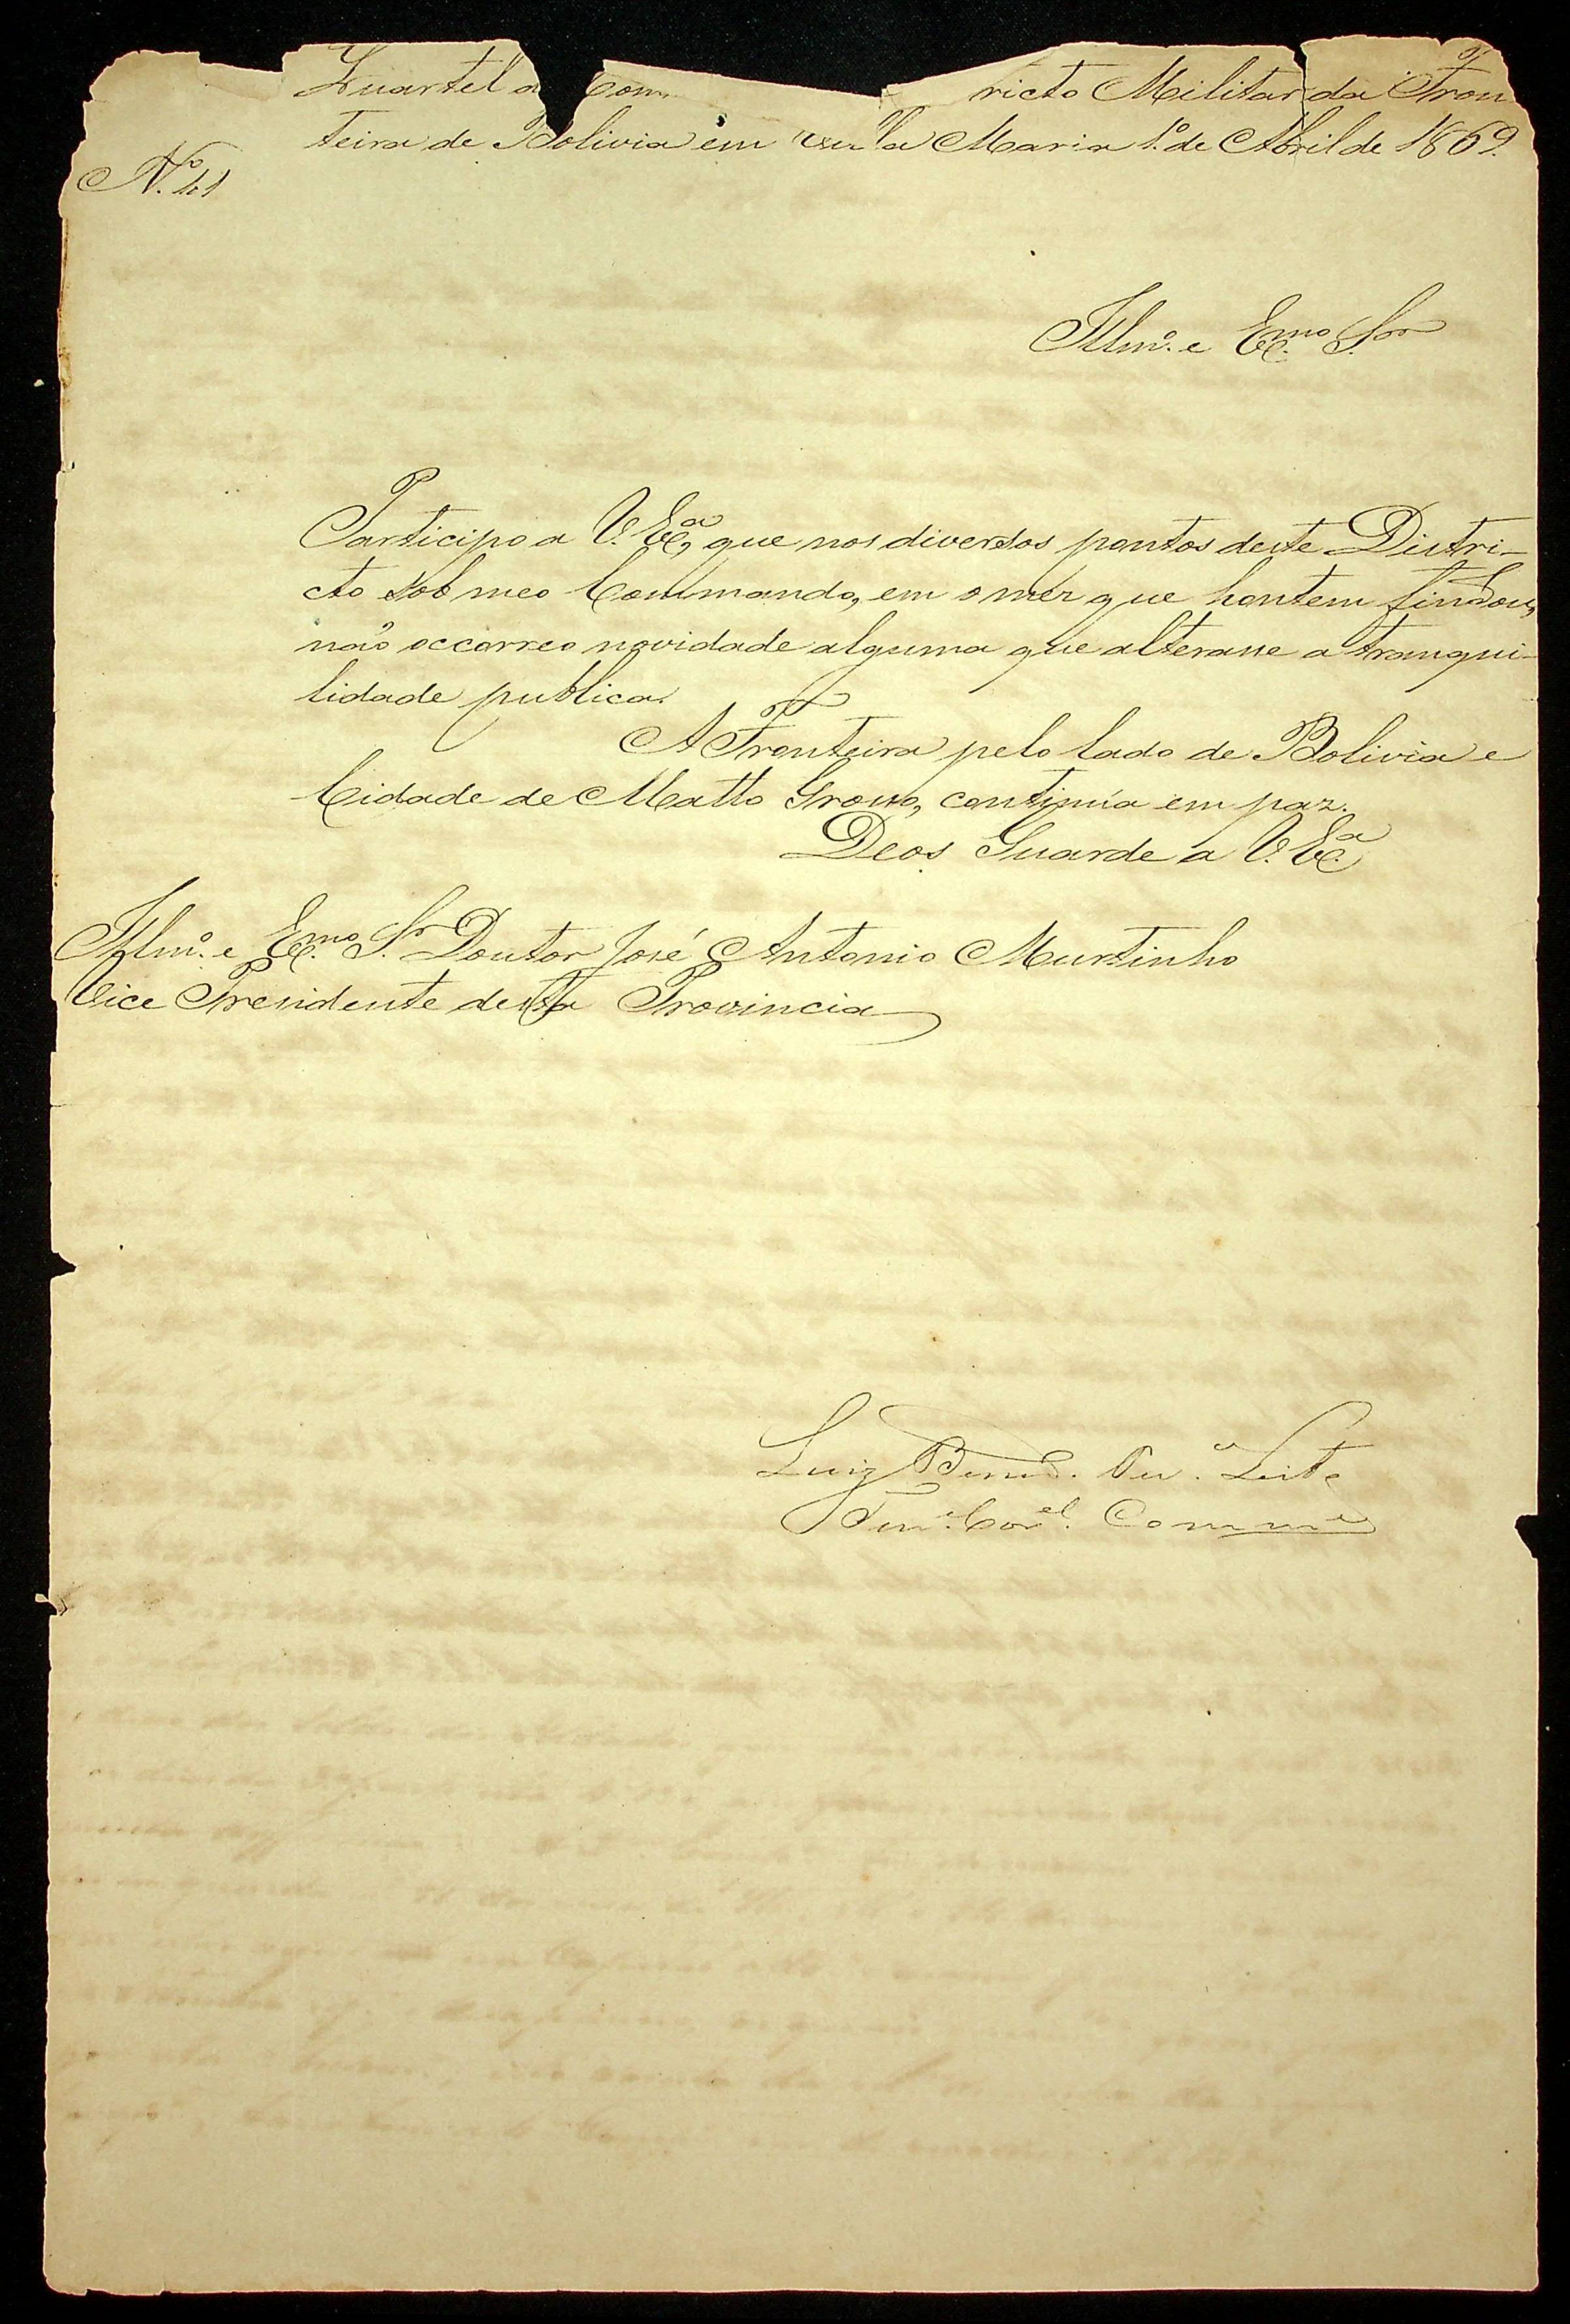 Quartel d Com ricto Militar da Fron
teira de Bolivia em Villa Maria 1.º de Abril de 1869.
N.º 41
Illm.º e Ex.mo Snr
Participo a V. Ex.ª, que nos diversos pontos deste Distri-
cto sob meo Commando, em o mez que hontem findou,
não occorreo novidade alguma que alterasse a tranqui-
lidade publica.
A Fronteira pelo lado de Bolivia e
Cidade de Matto Grosso, continúa em paz.
Deos Guarde a V. Ex.ª
Illm.º e Ex.mo Sr Doutor José Antonio Murtinho
Vice Presidente desta Provincia
Luiz Bened. Per.ª Leite
Ten.e Cor.el Comm.e